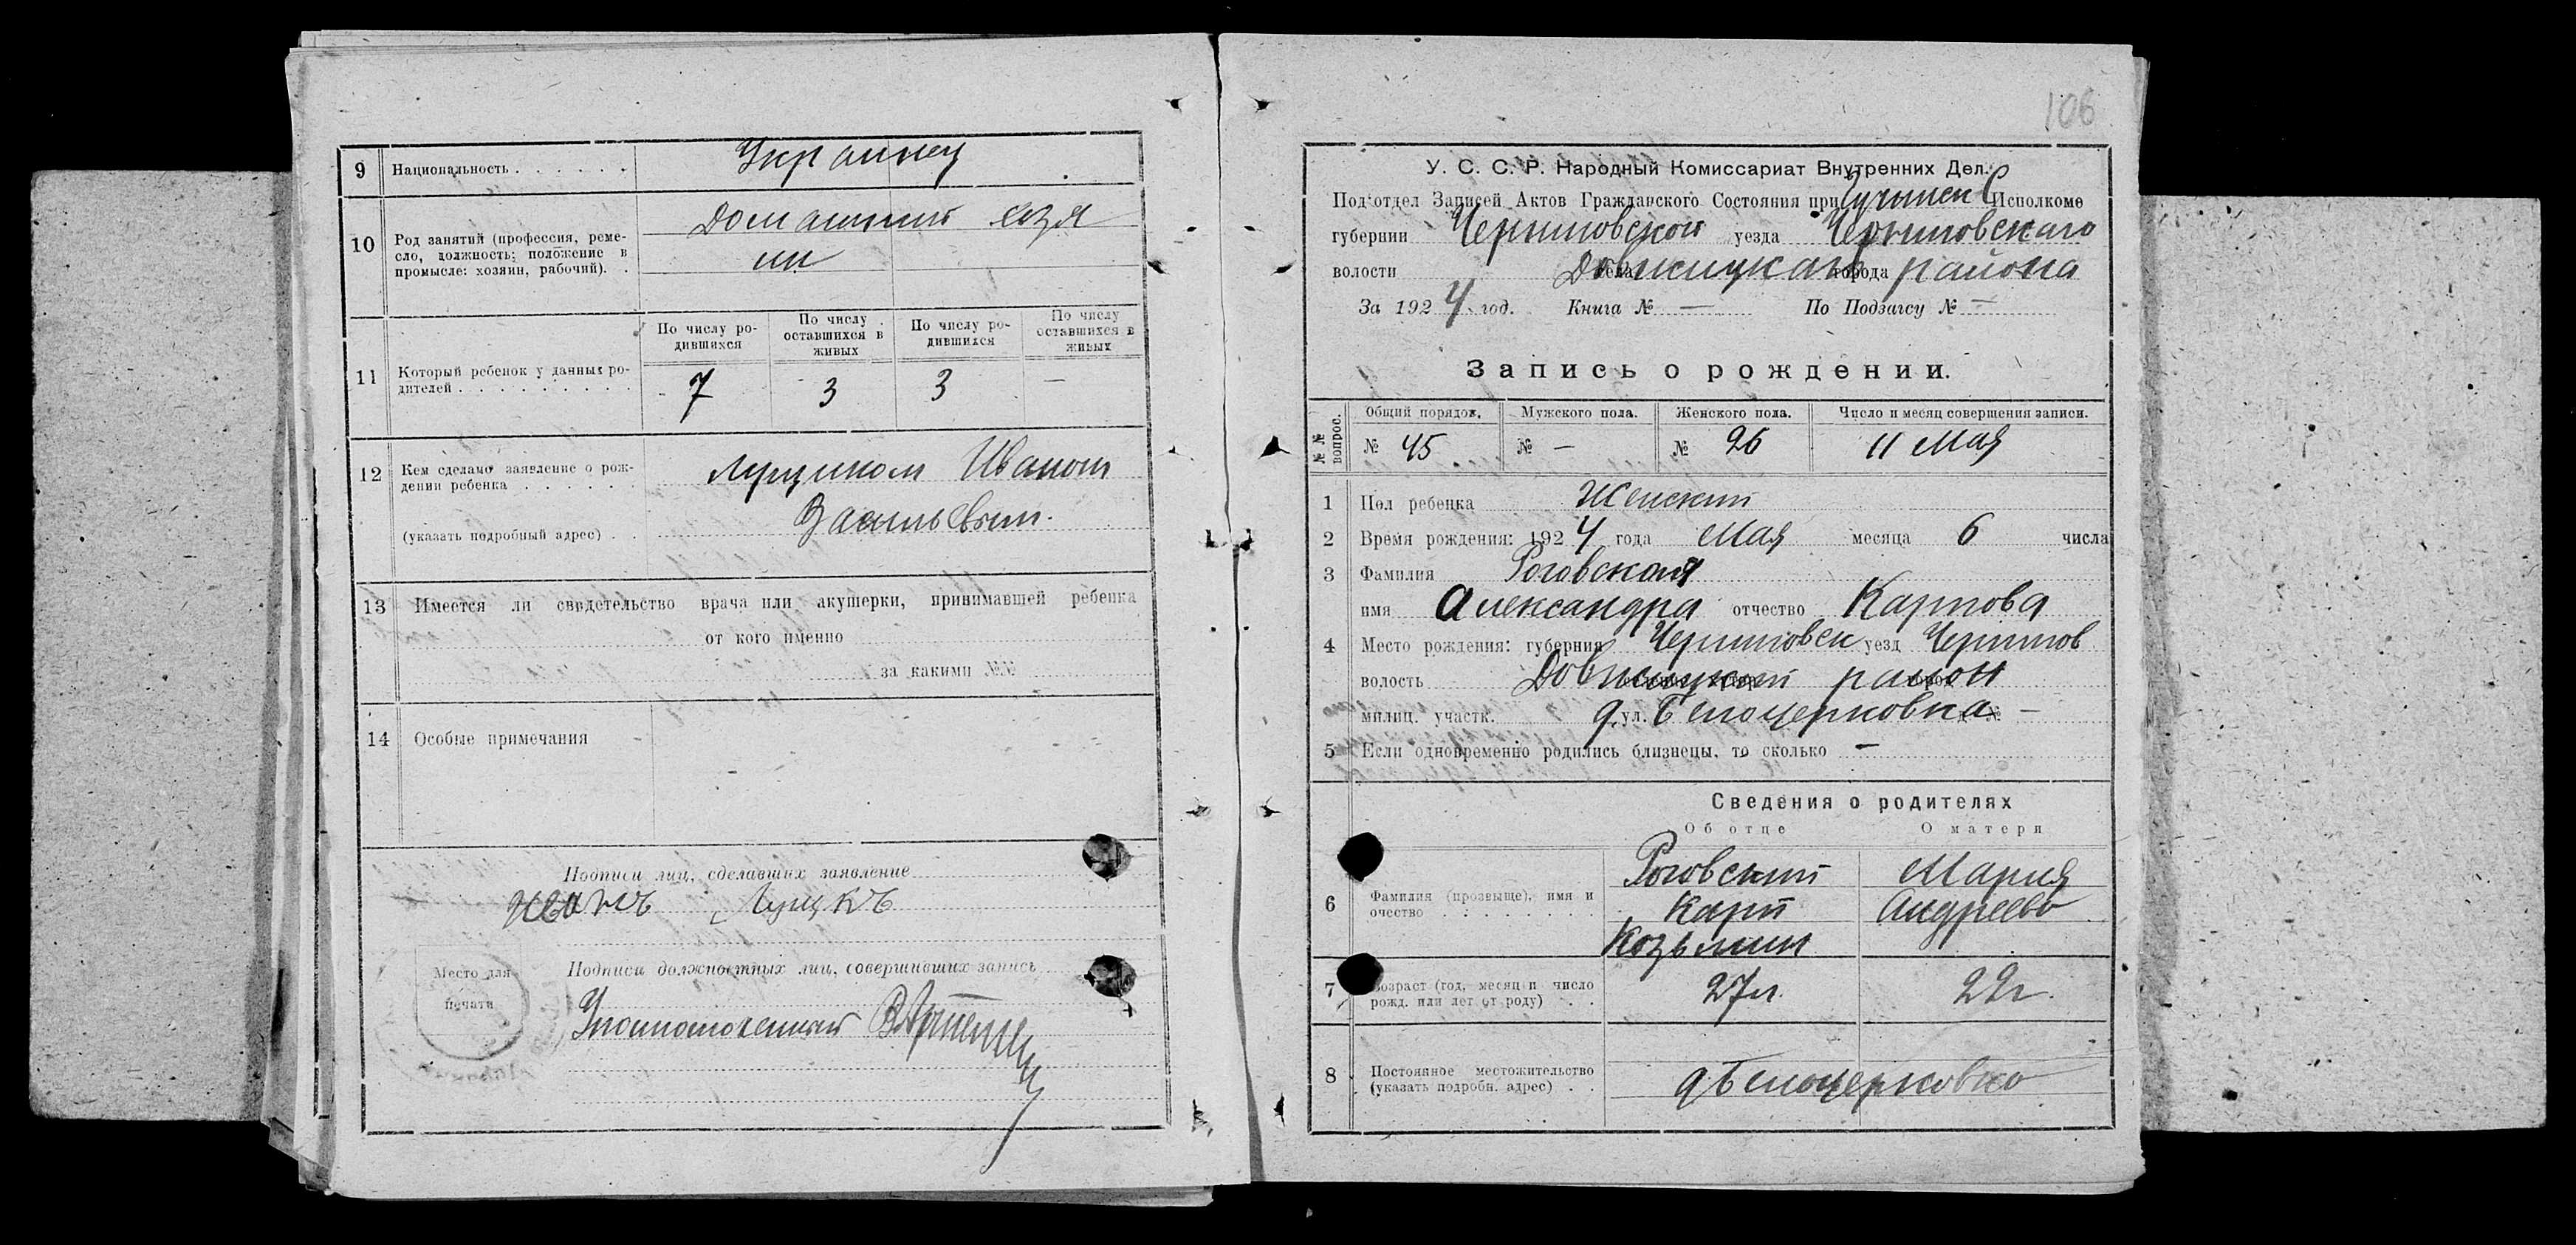 9 Национальность . . . . . . Украинец
10 Род занятий (профессия, реме-
сло, должность; положение в
промысле: хозяин, рабочий). .
Домашний хозя
ин
11 Который ребенок у данных ро-
дителей . . . . . . . . . .
По числу ро-
дившихся
По числу
оставшихся в
живых
По числу ро-
дившихся
По числу
оставшихся в
живых
7 3 3 —
12 Кем сделано заявление о рож-
дении ребенка . . . . . .
(указать подробный адрес) . .
Луциком Иваном
Васильевым.
13 Имеется ли свидетельство врача или акушерки, принимавшей ребенка
от кого именно
за какими №№
14 Особые примечания
Подписи лиц, сделавших заявление
Иванъ Луцкъ
Место для
печати
Подписи должностных лиц, совершивших запись
Уполномоченный
106
У. С. С. Р. Народный Комиссариат Внутренних Дел.
Подотдел Записей Актов Гражданского Состояния при Исполкоме
губернии Черниговской уезда Черниговскаго
волости села города района
За 1924 год. Книга № — По Подзагсу № —
Запись о рождении.
№№ вопрос.
Общий порядок. Мужского пола. Женского пола. Число и месяц совершения записи.
№ 45 № — № 26 11 мая
1 Пол ребенка Женский
2 Время рождения: 1924 года Мая месяца 6 числа
3 Фамилия Роговская
имя Александра отчество Карпова
4 Место рождения: губерния Черниговск уезд Чернигов
волость район
милиц. участк. д. ул. Белоцерковка №  —
5 Если одновременно родились близнецы, то сколько —
Сведения о родителях
Об отце О матери
6 Фамилия (прозвыще), имя и
очество . . . . . . . .
Роговский
Карп
Козьмин
Мария
Андреева
7 Возраст (год, месяц и число
рожд. или лет от роду) . .
27 л. 22 г.
8 Постоянное местожительство
(указать подробн. адрес) . .
д Белоцерковка